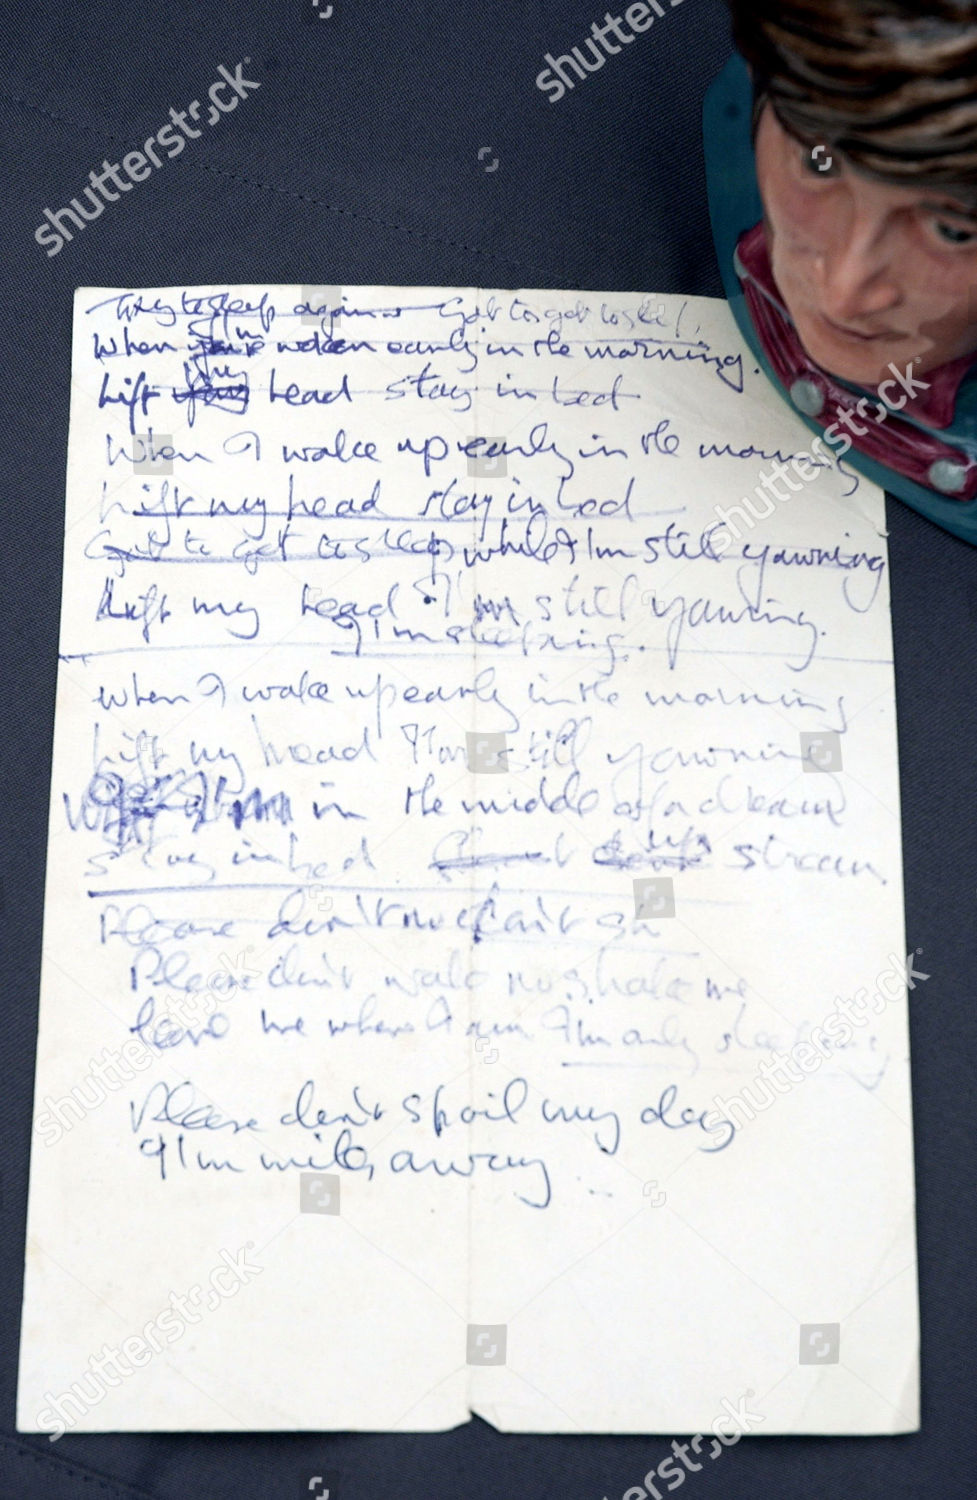 Try to sleep again Got to get to sle
When I'm woken early in the morning.
my
Lift my head stay in bed
When I wake up early in the morning
Lift my head stay in bed
Got to get to sleep while I'm still yawning
Lift my head I'm still yawning.
I'm sleeping.
when I wake up early in the morning
Lift my head I'm still yawning
in the middle of a dream
stay in bed up stream.
Please don't no don't sh
Please don't wake no shake me
leave me where I am I'm only sleeping.
Please don't spoil my day
I'm miles away
shutterstock
shutterstock
shutterstock
shutterstock
shutterstock
shutterstock
shutterstock
shutterstock